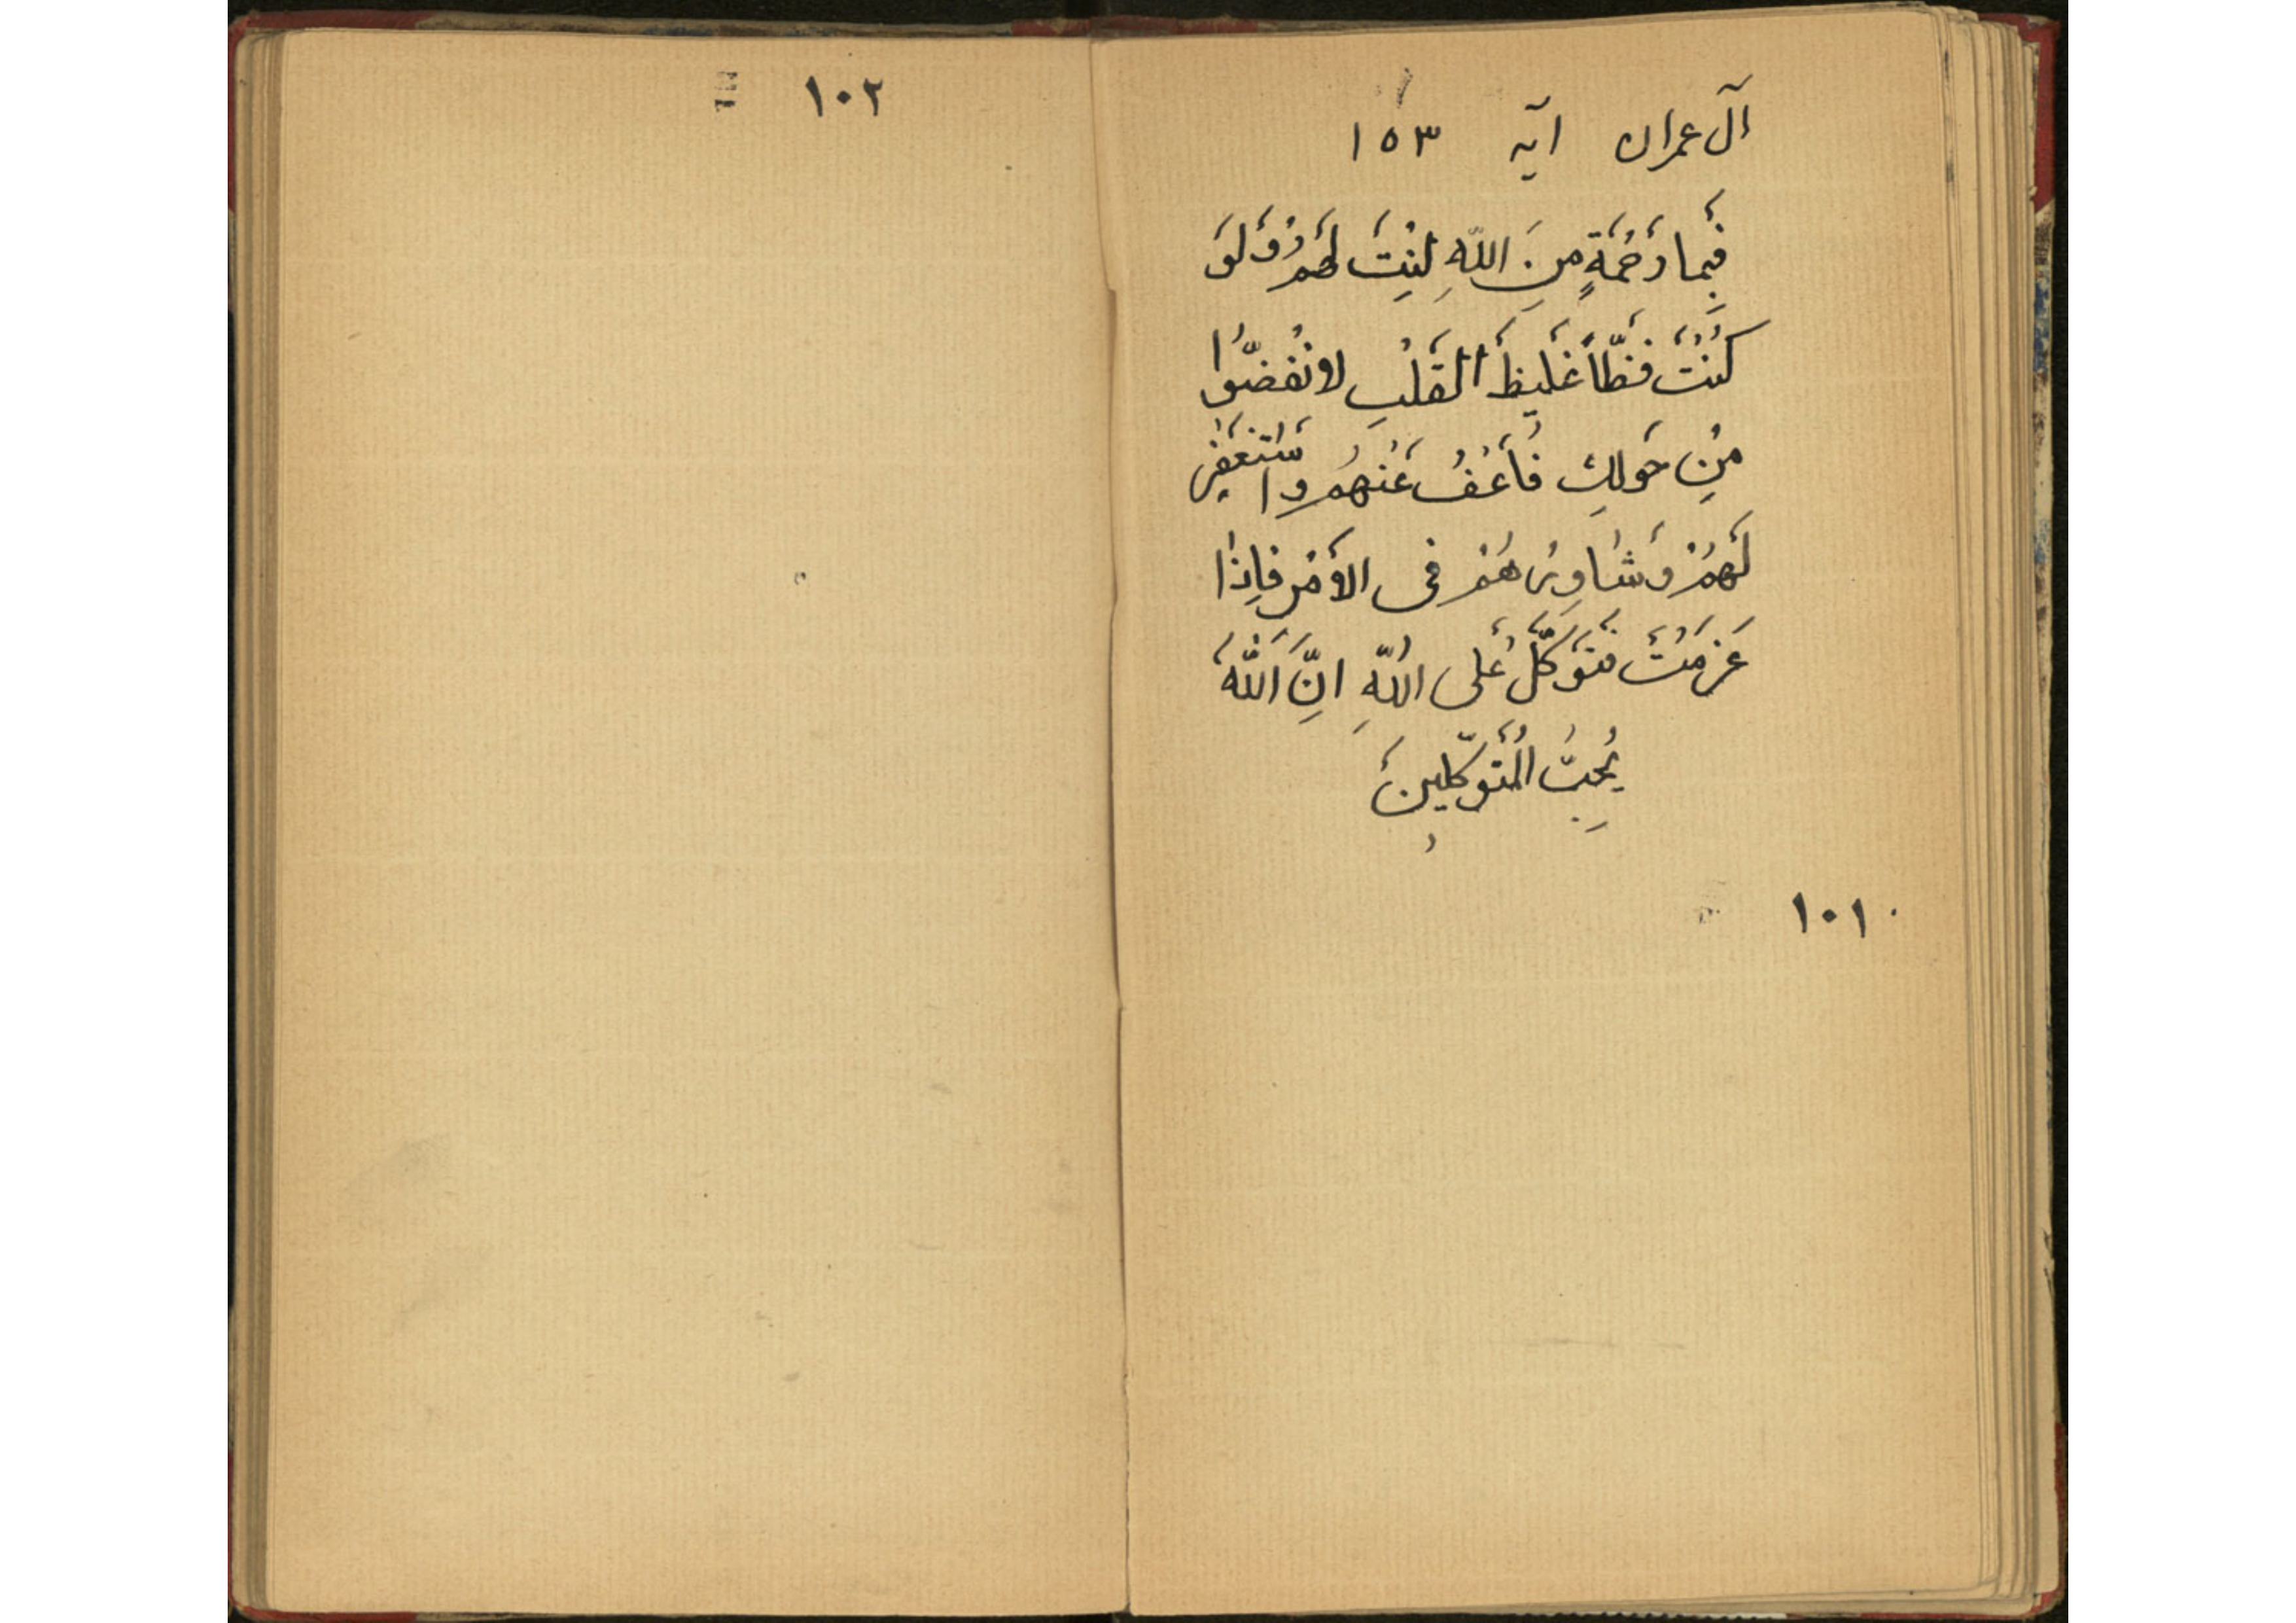 آل عمران آية ١٥٣
فَبِما رَحْمَةٍ مِنَ اللّهِ لِنْتَ لَهُمْ وَلَوَ
كُنْتَ فَظّاً غَلَيظَ القَلْبِ لانْفَضّوُا
مِنْ حَولِكَ فَاعْفُ عَنْهُمْ واسْتَغْفِرْ
لَهُمْ وَشاوِرْهُمْ فى الأَمْرِ فإِذا
عَزَمْتَ فَتَوَكَّلْ عَلى اللّهِ انَِّ اللّهَ
يُحِبُّ المُتَوَكّلِينَ
١٠١
١٠٢